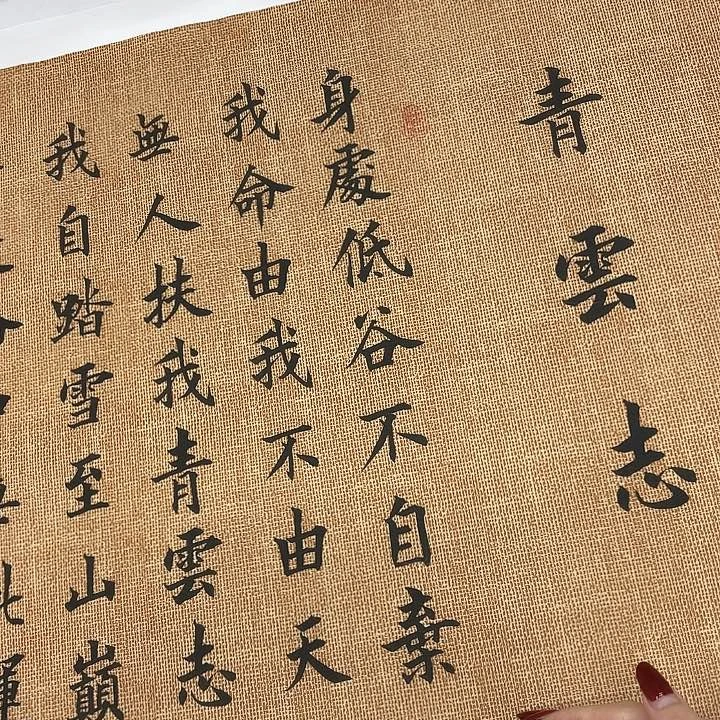 青雲志
身處低谷不自棄
我命由我不由天
無人扶我青雲志
我自踏雪至山巔